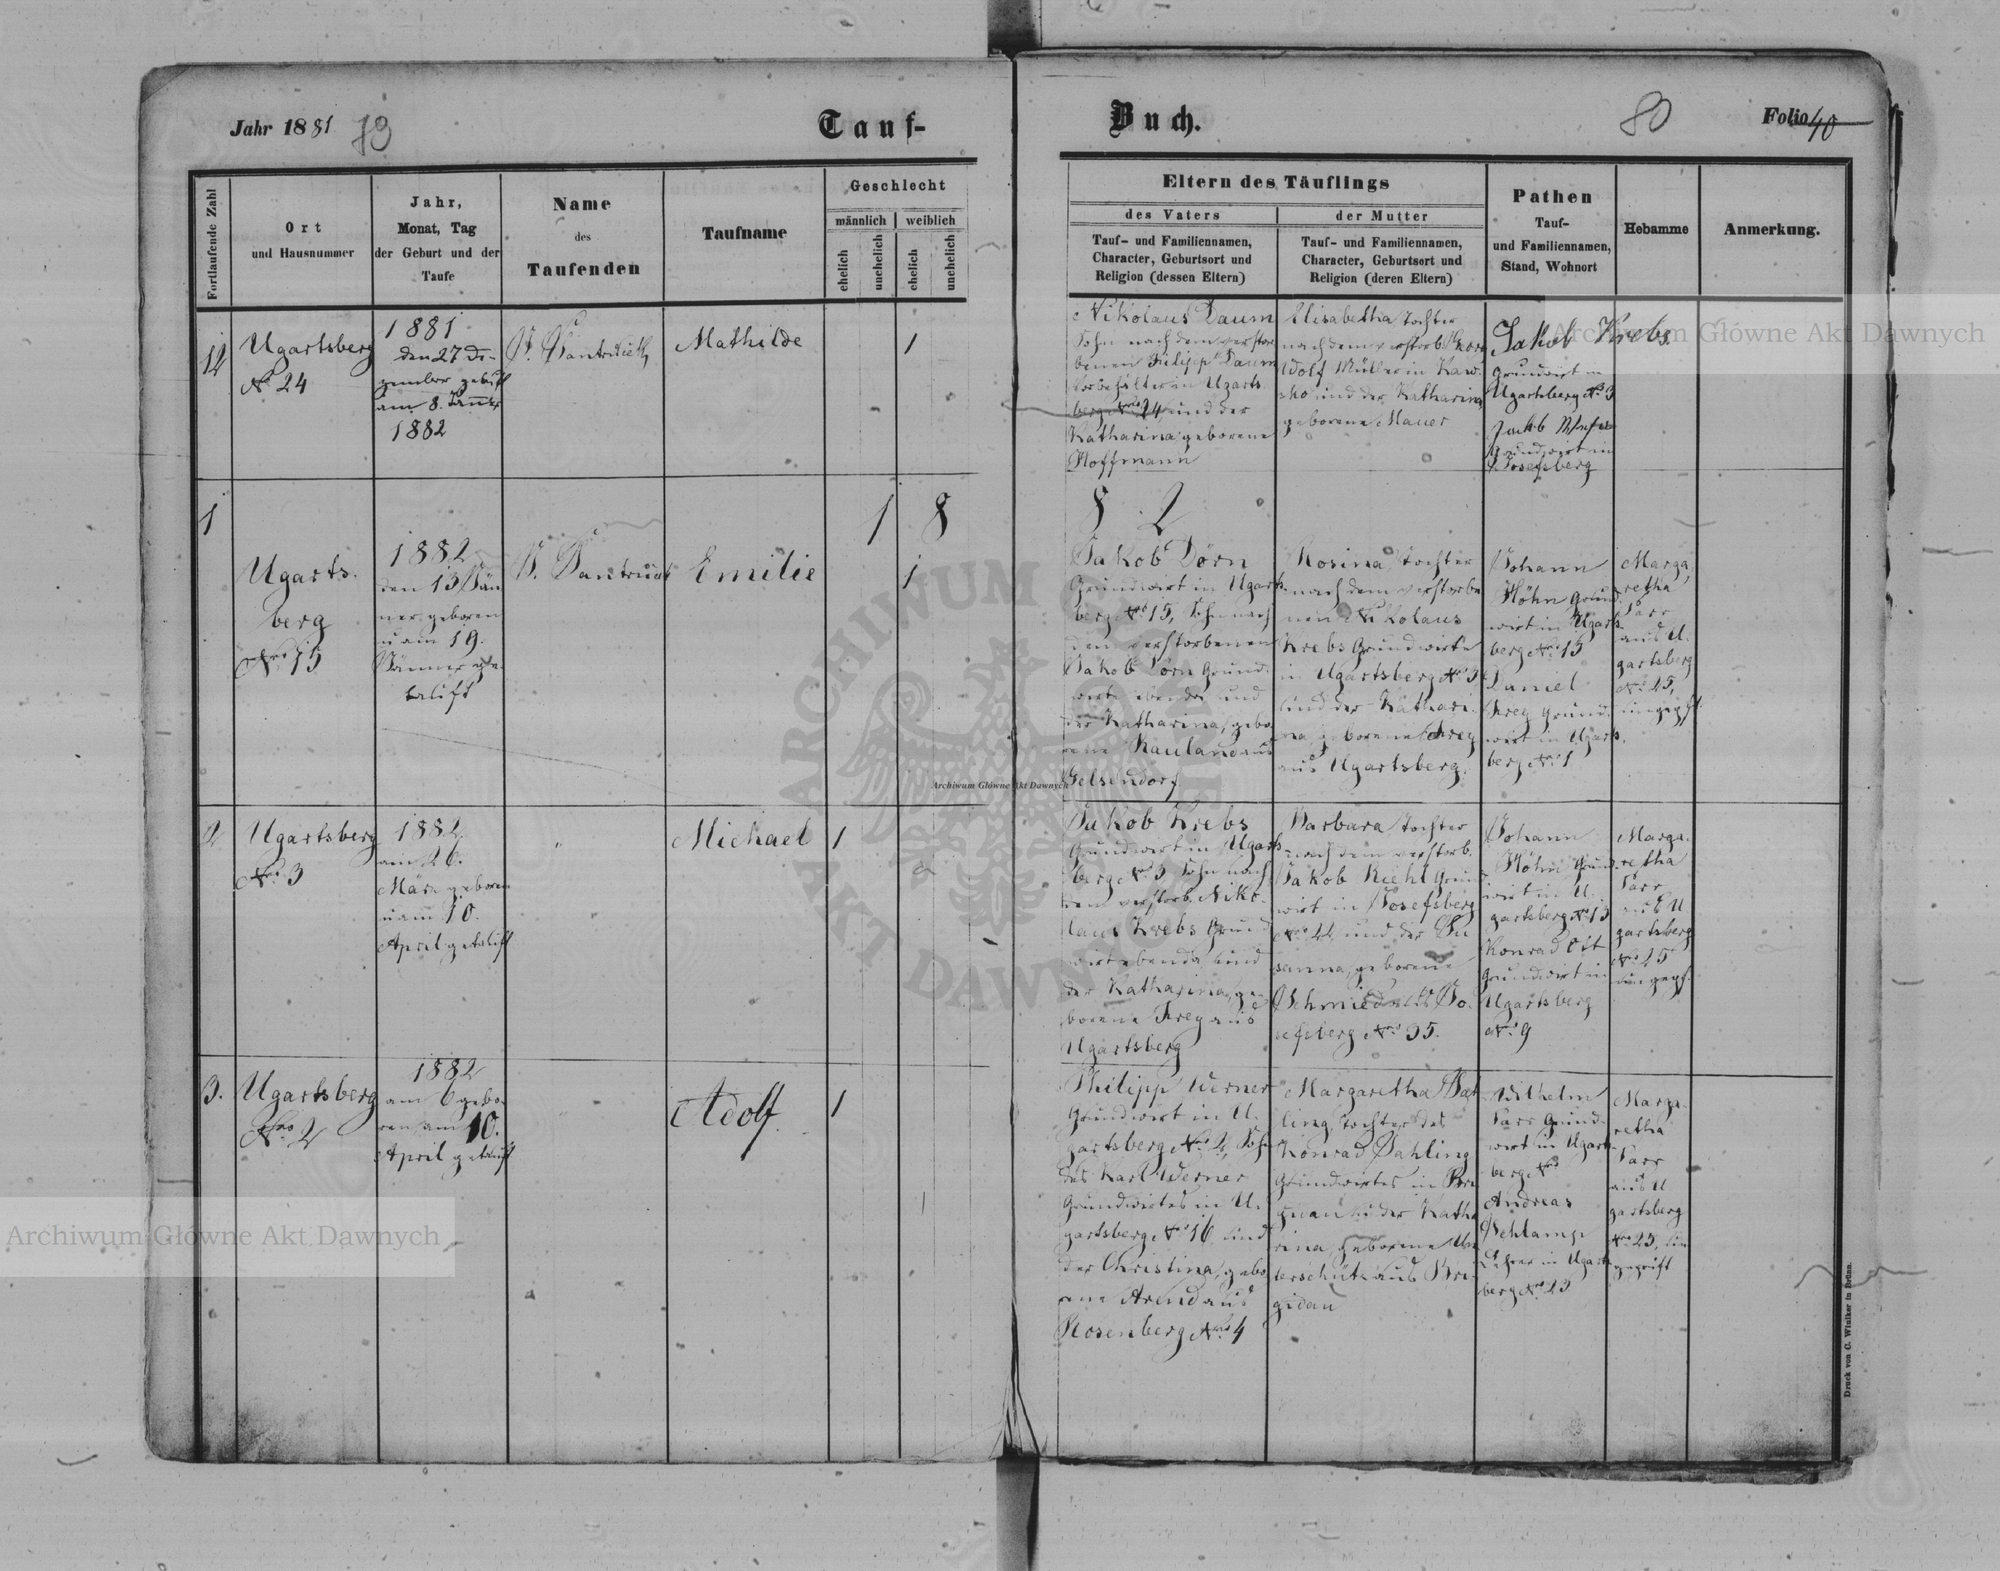 Jahr 1881
79
Tauf-
Buch.
80
Folio 40
Fortlaufende Zahl
Ort
und Hausnummer
Jahr,
Monat, Tag
der Geburt und der
Taufe
Name
des
Taufenden
Taufname
Geschlecht
männlich
weiblich
ehelich
unehelich
ehelich
unehelich
Eltern des Täuflings
des Vaters
der Mutter
Tauf- und Familiennamen,
Character, Geburtsort und
Religion (dessen Eltern)
Tauf- und Familiennamen,
Character, Geburtsort und
Religion (deren Eltern)
Pathen
Tauf-
und Familiennamen,
Stand, Wohnort
Hebamme
Anmerkung.
12
Ugartsberg
No 24
1881
den 27 De-
zember
am 8. Jänner
1882
Mathilde
1
Nikolaus Daum
Sohn nach dem verstor
benen Filipp Daum
in Ugarts.
berg Nro 24, und der
Katharina geborene
Hoffmann
Elisabetha Tochter
nach dem verstorb.
Müller in
und der Katharina,
geborene Mauer
Jakob Krebs
Grundwirt in
Ugartsberg No 3
Jakob
Grundwirt in
Josefsberg
1
1 8
8 2
Ugarts.
berg
Nro 15
1882
den 13 Jän
ner geboren
u am 19.
Jänner ge.
tauft
Emilie
1
Jakob Dörn
Grundwirt in Ugarts.
berg No 15, Sohn nach
den verstorbenen
Jakob Dörn Grund.
wirt ebenda und
der Katharina, gebo.
rene Kauland aus
Gelsendorf
Rosina, Tochter
nach dem verstorbe
nen Nikolaus
Krebs Grundwirts
in Ugartsberg No 3
und der Kathari.
na, geborene Kreg
aus Ugartsberg.
Johann
Höhn Grund.
wirt in Ugarts.
berg No 13
Daniel
Kreg Grund.
wirt in Ugarts.
berg No 1
Marga,
retha
Parr
aus U.
gartsberg
No 25,
2
Ugartsberg
No 3
1882
am 26.
März geboren
u am 10.
April getauft
"
Michael
1
Jakob Krebs
Grundwirt in Ugarts
berg No 3, Sohn nach
dem verstorb. Niko.
laus Krebs Grund
wirt ebenda und
der Katharina, ge.
borene Kreg aus
Ugartsberg
Barbara Tochter
nach dem verstorb.
Jakob Riehl Grund
wirt in Josefsberg
No 44, und der Su
sanna, geborene
Schmied aus Jo.
sefsberg No 35.
Johann
Höhn Grund.
wirt in U.
gartsberg No 13
Konrad Ott
Grundwirt in
Ugartsberg
No 9
Marga.
retha
Parr
aus U
gartsberg
No 25
3.
Ugartsberg
No 2
1882
am 6 gebo.
ren, am 10.
April getauft
Adolf.
1
Philipp Werner
Grundwirt in U.
gartsberg No 2, Sohn
des Karl Werner
Grundwirtes in U.
gartsberg No 16 und
der Christina, gebo
rene Arend aus
Rosenberg No 4
Margaretha
ling, Tochter des
Konrad Dahling
Grundwirtes in Bri
und der Katha
rina, geborene Un
terschütz aus Bri.
gidau
Wilhelm
Parr Grund.
wirt in Ugarts.
berg No
Andreas
Schlamp
Lehrer in Ugarts
berg No 23
Marga.
retha
Parr
aus U
gartsberg
No 25,
Druck von C. Winiker in Brünn.
Archiwum Główne Akt Dawnych
Archiwum Główne Akt Dawnych
Archiwum Główne Akt Dawnych
ARCHIWUM GŁÓWNE AKT DAWNYCH